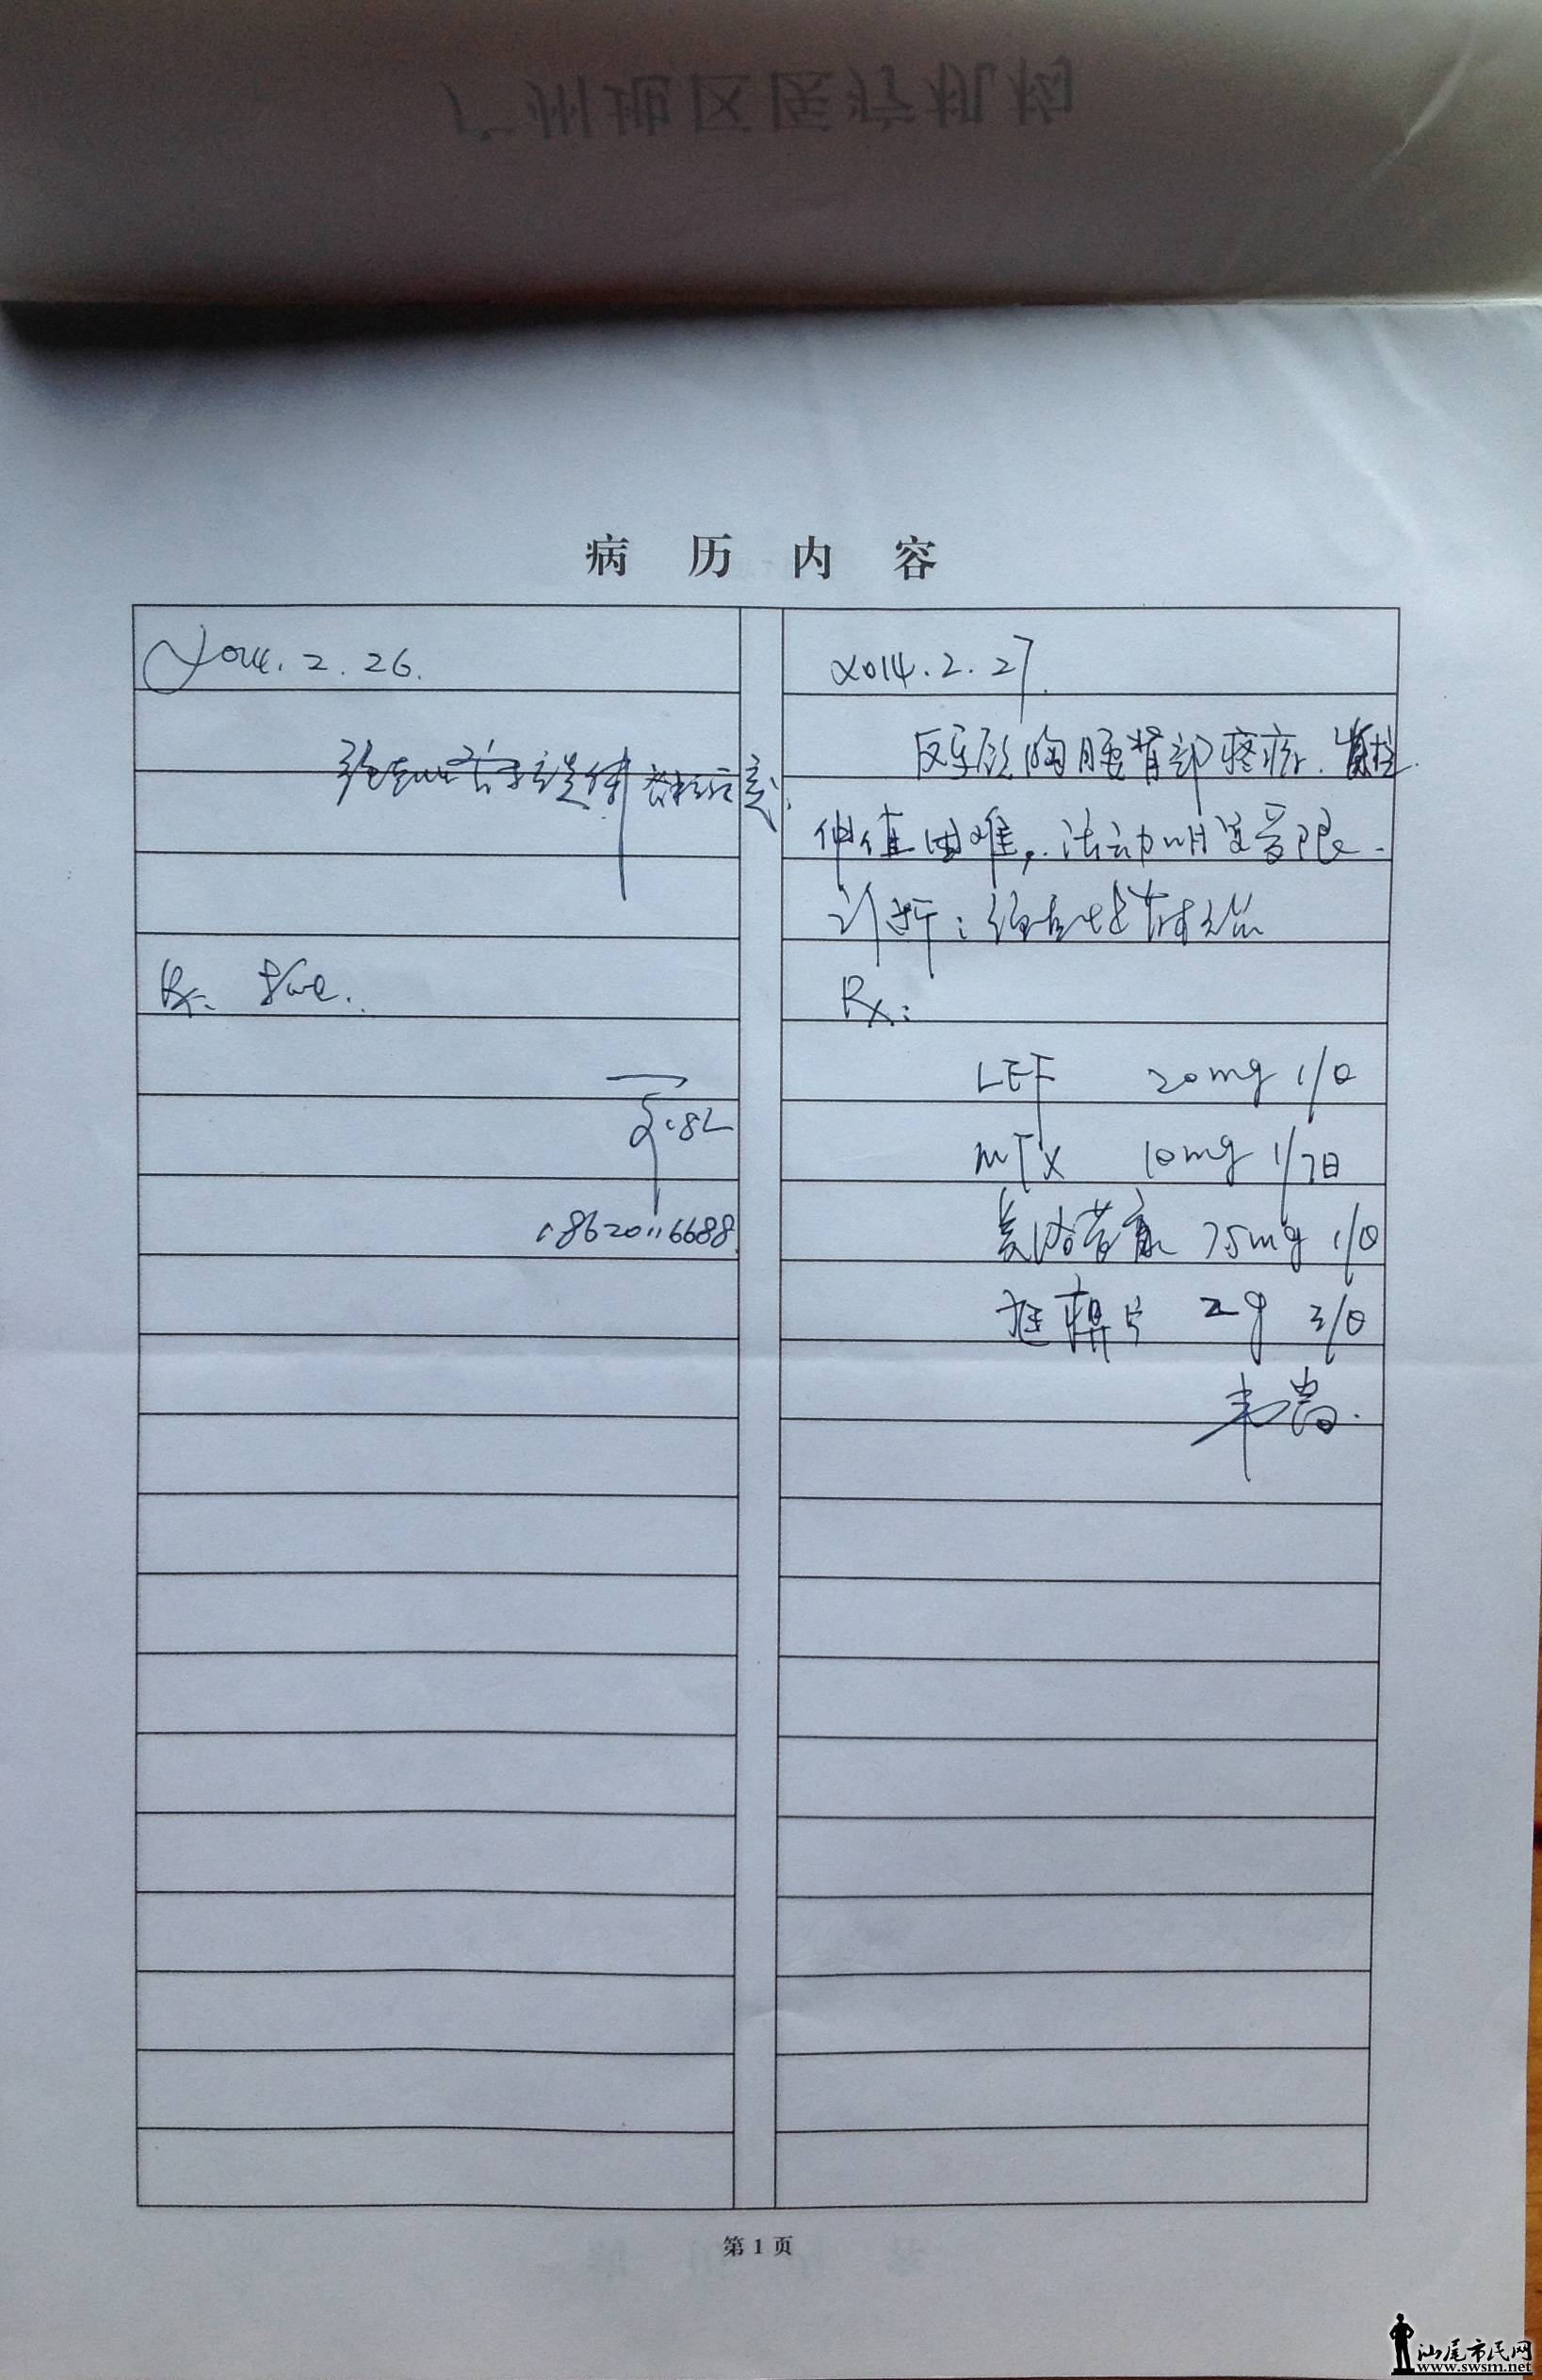 广州地区医疗机构
病 历 内 容
2014.2.26.
Rx.
18620116688
2014.2.27.
反复颈胸腰背部疼痛.脊柱
伸直困难,活动明显受限.
诊断:强直性脊柱炎
Rx:
LEF 20mg 1/日
MTX 10mg 1/7日
美洛昔康 75mg 1/日
片 2g 3/日
韦嵩.
第1页
汕尾市民网
www.swsm.net